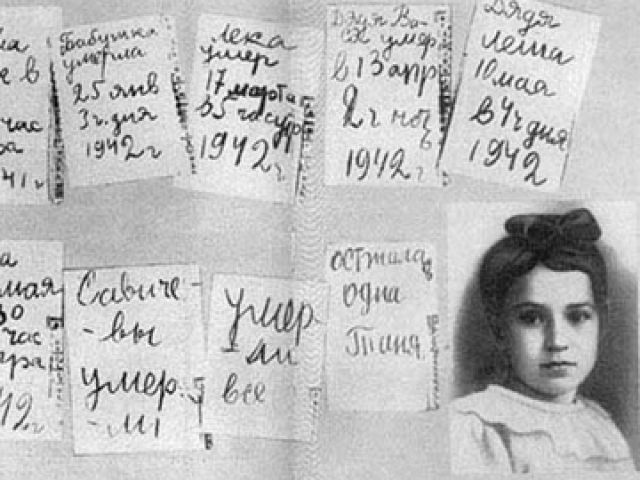 ла
е в
час
ра
41 г
Бабушка
умерла
25 янв
3 ч. дня
1942 г
Лека
умер
17 марта
в 5 час утр
1942 г
Дядя Ва-
ся умер
в 13 апр
2 ч ноч
1942 г
Дядя
Леша
10 мая
в 4 ч дня
1942
а
мая
30
час
тра
42 г
Савиче-
-вы
умер-
-ли
умер-
-ли
все
осталась
одна
Таня